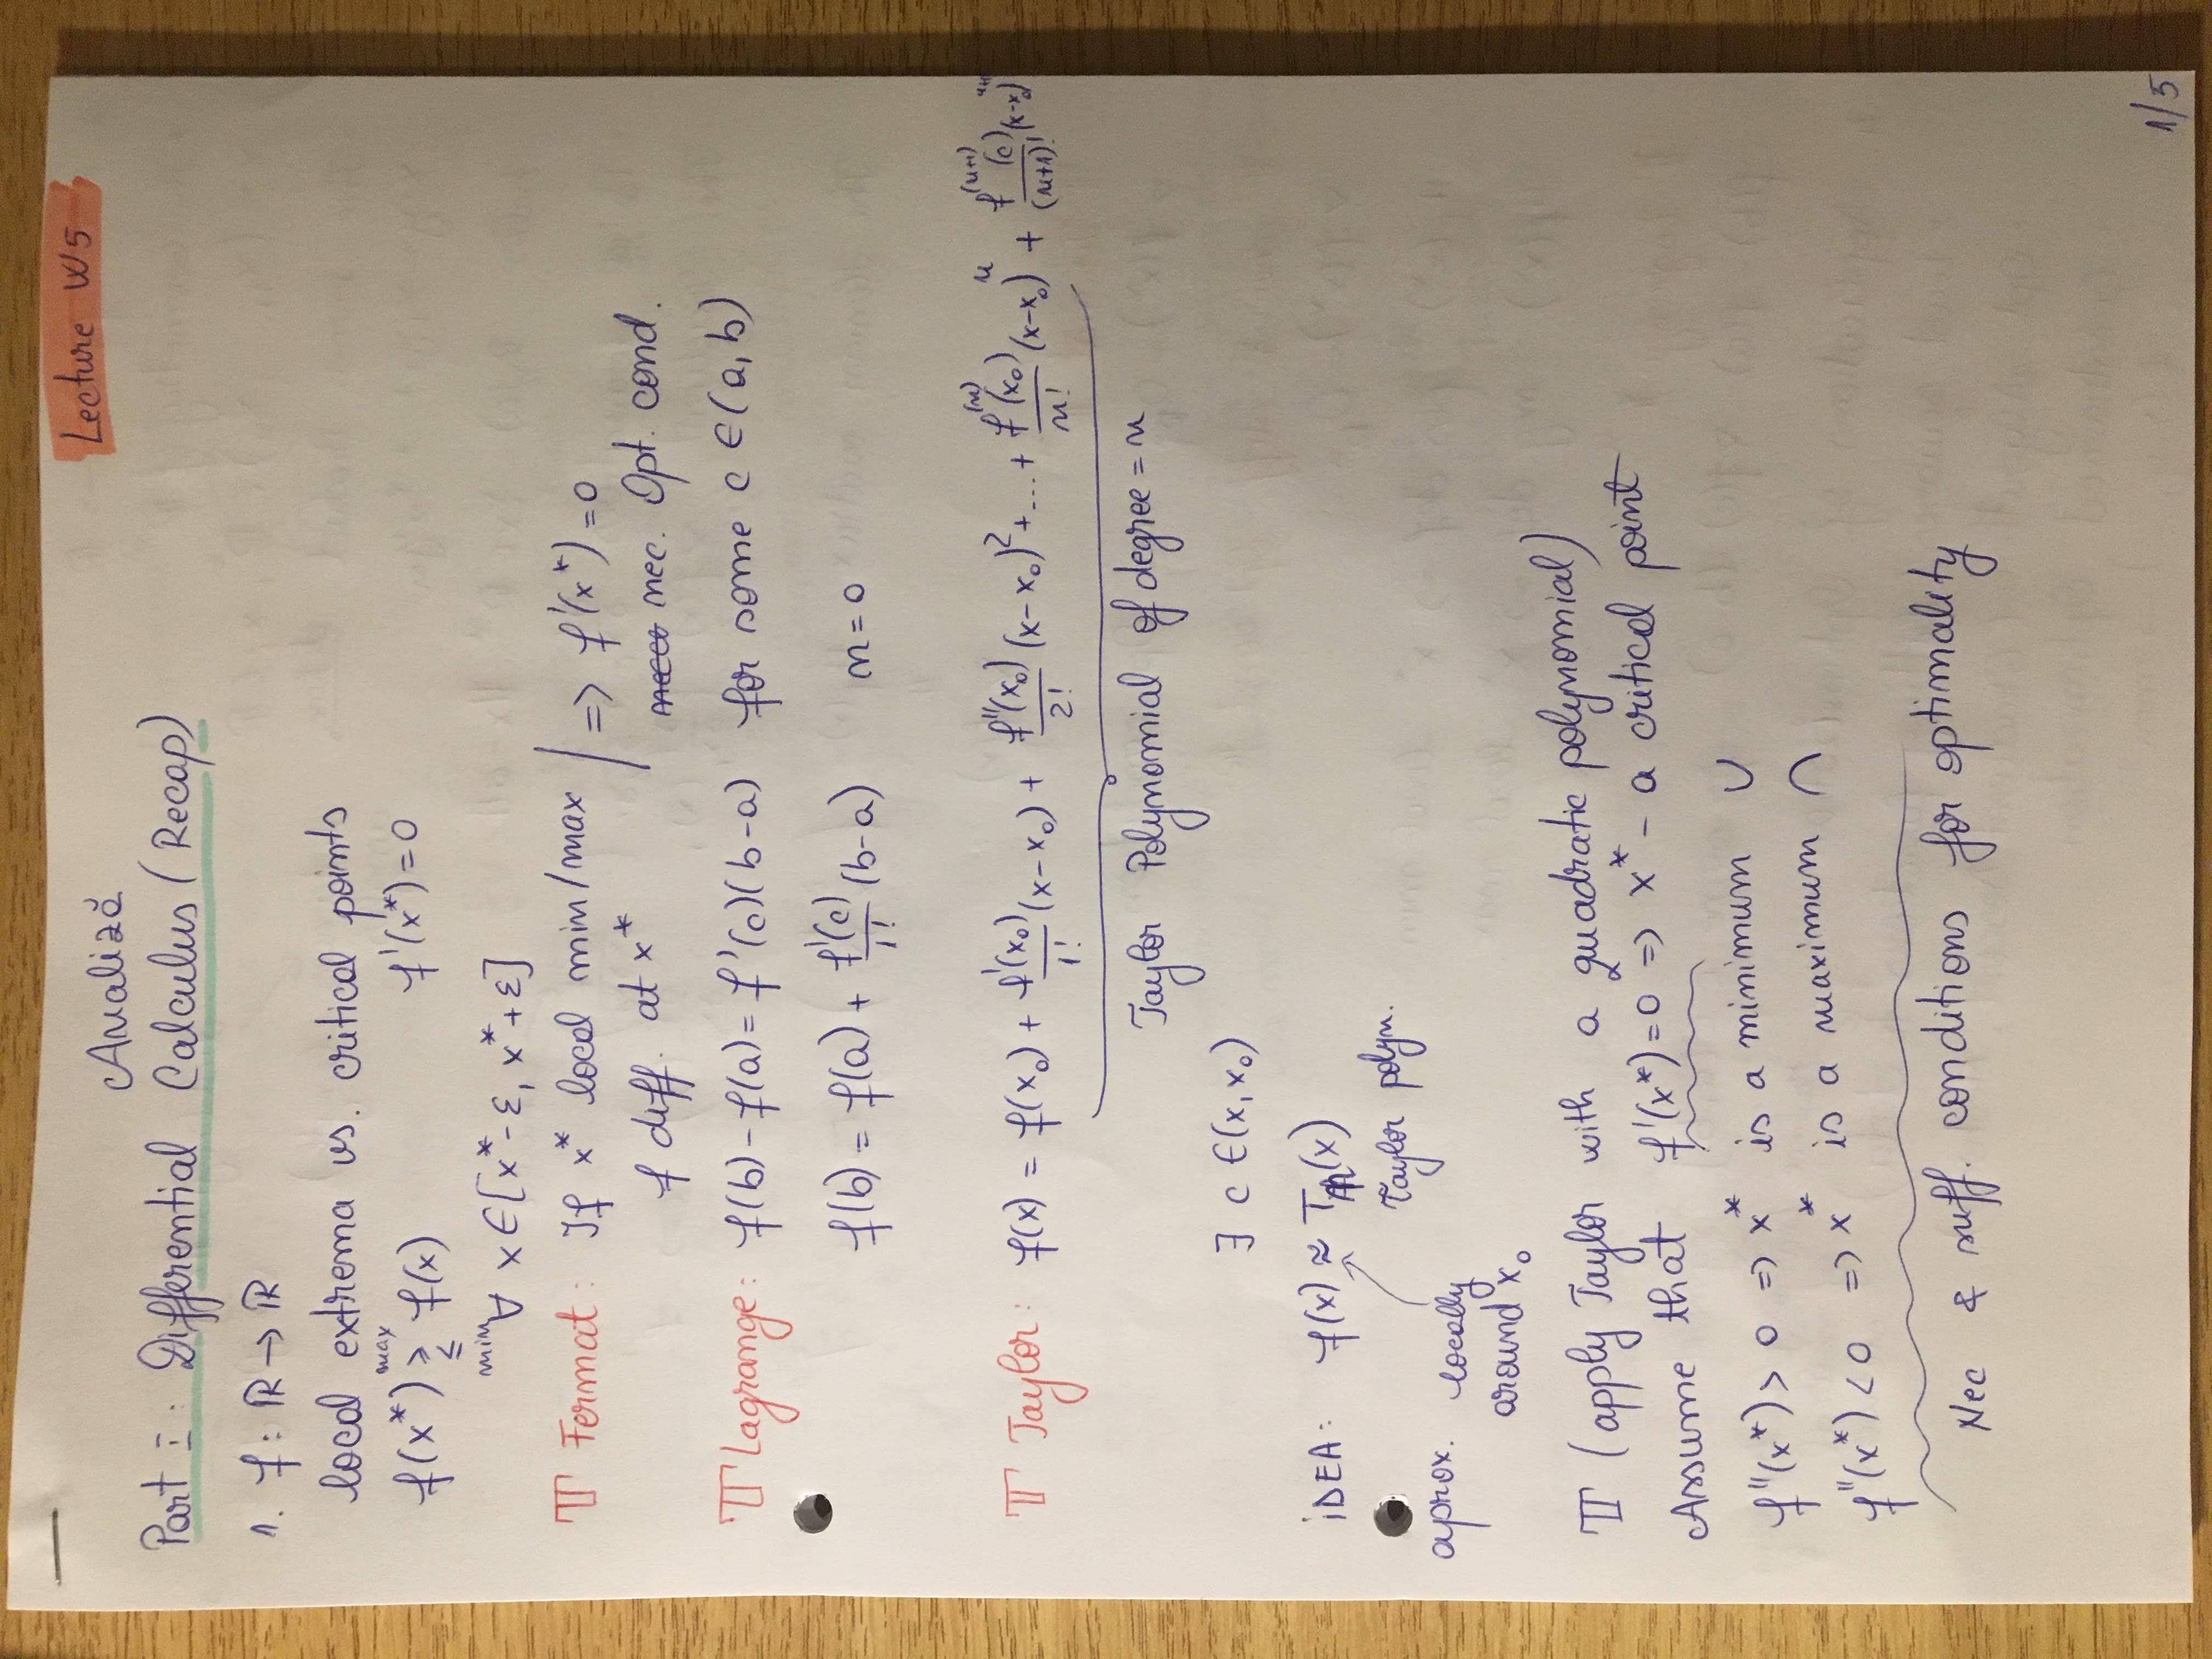 Lecture W5
Analiză
Part I: Differential Calculus (Recap)
1. f: ℝ → ℝ
local extrema vs. critical points
f(x*) ≥ max ≤ min f(x)    f'(x*) = 0
∀ x ∈ [x* - ε, x* + ε]
T Fermat: If x* local min/max | => f'(x*) = 0
f diff. at x*    nec. Opt. cond.
T Lagrange: f(b) - f(a) = f'(c)(b-a) for some c ∈ (a, b)
f(b) = f(a) + f'(c)/1! (b-a)    n = 0
T Taylor: f(x) = f(x₀) + f'(x₀)/1! (x-x₀) + f''(x₀)/2! (x-x₀)² + ... + f⁽ⁿ⁾(x₀)/n! (x-x₀)ⁿ + f⁽ⁿ⁺¹⁾(c)/(n+1)! (x-x₀)ⁿ⁺¹
Taylor Polynomial of degree = n
∃ c ∈ (x, x₀)
iDEA: f(x) ≈ Tₙ(x)
Taylor polyn.
aprox. locally
around x₀
T (apply Taylor with a quadratic polynomial)
Assume that f'(x*) = 0 => x* - a critical point
f''(x*) > 0 => x* is a minimum ∪
f''(x*) < 0 => x* is a maximum ∩
Nec & suff. conditions for optimality
1/5